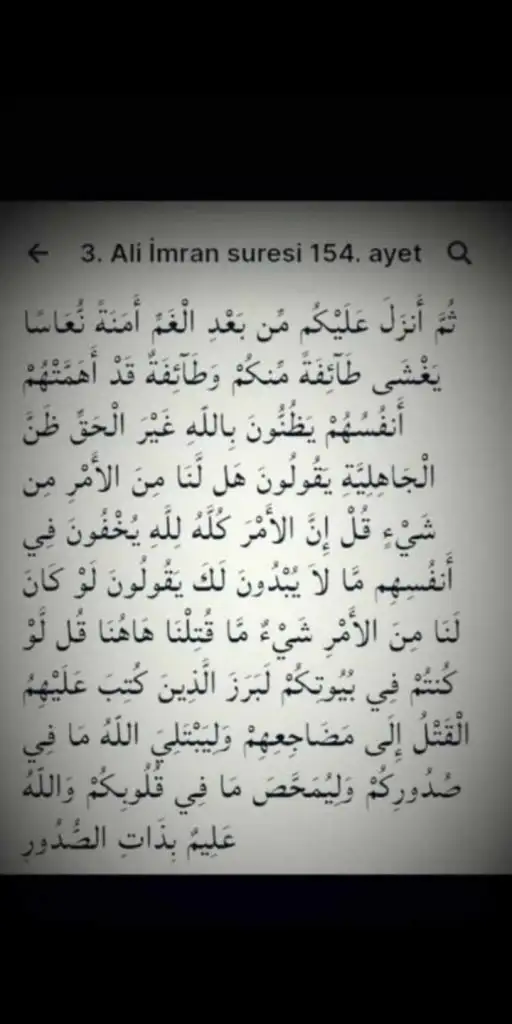 3. Ali İmran suresi 154. ayet
ثُمَّ أَنزَلَ عَلَيْكُم مِّن بَعْدِ الْغَمِّ أَمَنَةً نُّعَاسًا
يَغْشَى طَآئِفَةً مِّنكُمْ وَطَآئِفَةٌ قَدْ أَهَمَّتْهُمْ
أَنفُسُهُمْ يَظُنُّونَ بِاللّهِ غَيْرَ الْحَقِّ ظَنَّ
الْجَاهِلِيَّةِ يَقُولُونَ هَل لَّنَا مِنَ الأَمْرِ مِن
شَيْءٍ قُلْ إِنَّ الأَمْرَ كُلَّهُ لِلَّهِ يُخْفُونَ فِي
أَنفُسِهِم مَّا لاَ يُبْدُونَ لَكَ يَقُولُونَ لَوْ كَانَ
لَنَا مِنَ الأَمْرِ شَيْءٌ مَّا قُتِلْنَا هَاهُنَا قُل لَّوْ
كُنتُمْ فِي بُيُوتِكُمْ لَبَرَزَ الَّذِينَ كُتِبَ عَلَيْهِمُ
الْقَتْلُ إِلَى مَضَاجِعِهِمْ وَلِيَبْتَلِيَ اللّهُ مَا فِي
صُدُورِكُمْ وَلِيُمَحَّصَ مَا فِي قُلُوبِكُمْ وَاللّهُ
عَلِيمٌ بِذَاتِ الصُّدُورِ